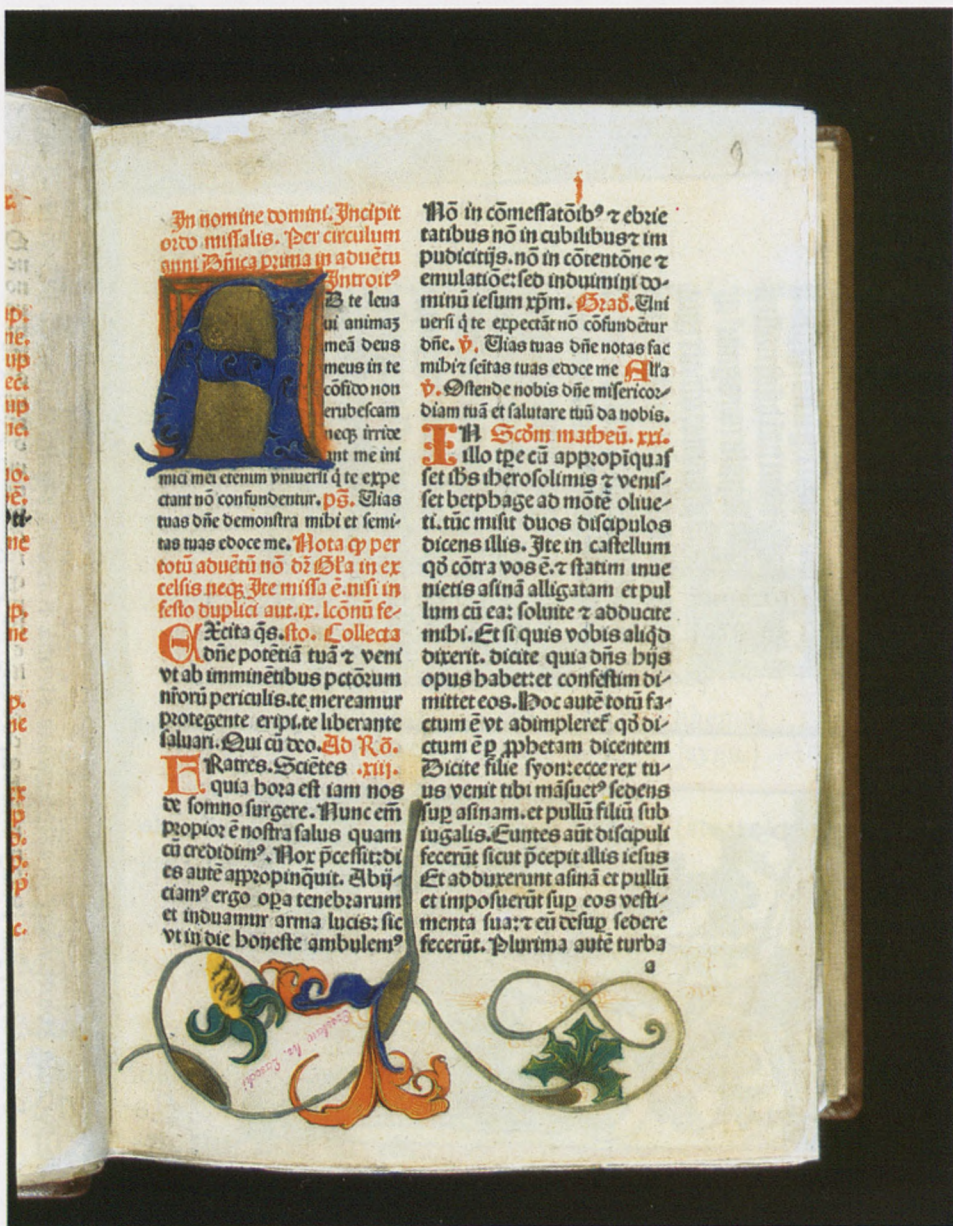 9
i
In nomine domini. Incipit
ordo missalis. Per circulum
anni Dñica prima in aduẽtu
Introitꝰ
D te leua
ui animaȝ
meã deus
meus in te
cõfido non
erubescam
neqꝫ irride
ant me ini
mici mei etenim vniuersi q̃ te expe
ctant nõ confundentur. ps̃. Uias
tuas dñe demonstra mihi et semi-
tas tuas edoce me. Nota ꝙ per
totũ aduẽtũ nõ dr̃ Gl̃ia in ex
celsis neqꝫ Ite missa ẽ. nisi in
festo duplici aut .ix. lcõnũ fe-
EXcita q̃s. sto. Collecta
dñe potẽtiã tuã ⁊ veni
vt ab imminẽtibus pctõrum
nr̃orũ periculis. te mereamur
protegente eripi. te liberante
saluari. Qui cũ deo. Ad Rõ.
FRatres. Sciẽtes .xiii.
quia hora est iam nos
de somno surgere. Nunc em̃
propior ẽ nostra salus quam
cũ credidimꝰ. Nox p̃cessit: di
es autẽ appropinq̃uit. Abij-
ciamꝰ ergo oꝑa tenebrarum
et induamur arma lucis: sic
vt in die honeste ambulemꝰ
Nõ in cõmessatõibꝰ ⁊ ebrie
tatibus nõ in cubilibus ⁊ im
pudicitijs. nõ in cõtentõne ⁊
emulatiõe: sed induimini do-
minũ iesum xp̃m. Grad̃. Uni
uersi q̃ te expectãt nõ cõfundẽtur
dñe. v̾. Uias tuas dñe notas fac
mihi ⁊ sẽitas tuas edoce me Al̃la
v̾. Ostende nobis dñe misericor-
diam tuã et salutare tuũ da nobis.
IN Scd̃m matheũ. xxi.
illo tp̃e cũ appropĩquas
set ih̃s iherosolimis ⁊ venis-
set betphage ad mõtẽ oliue-
ti. tũc misit duos discipulos
dicens illis. Ite in castellum
qd̃ cõtra vos ẽ. ⁊ statim inue
nietis asinã alligatam et pul
lum cũ ea: soluite ⁊ adducite
mihi. Et si quis vobis aliq̃d
dixerit. dicite quia dñs hijs
opus habet: et confestim di-
mittet eos. Hoc autẽ totũ fa-
ctum ẽ vt adimpleret̃ qd̃ di-
ctum ẽ ꝑ ꝓphetam dicentem
Dicite filie syon: ecce rex tu-
us venit tibi mãsuetꝰ sedens
suꝑ asinam. et pullũ filiũ sub
iugalis. Euntes aũt discipuli
fecerũt sicut p̃cepit illis iesus
Et adduxerunt asinã et pullũ
et imposuerũt suꝑ eos vesti-
menta sua: ⁊ eũ desuꝑ sedere
fecerũt. Plurima autẽ turba
a